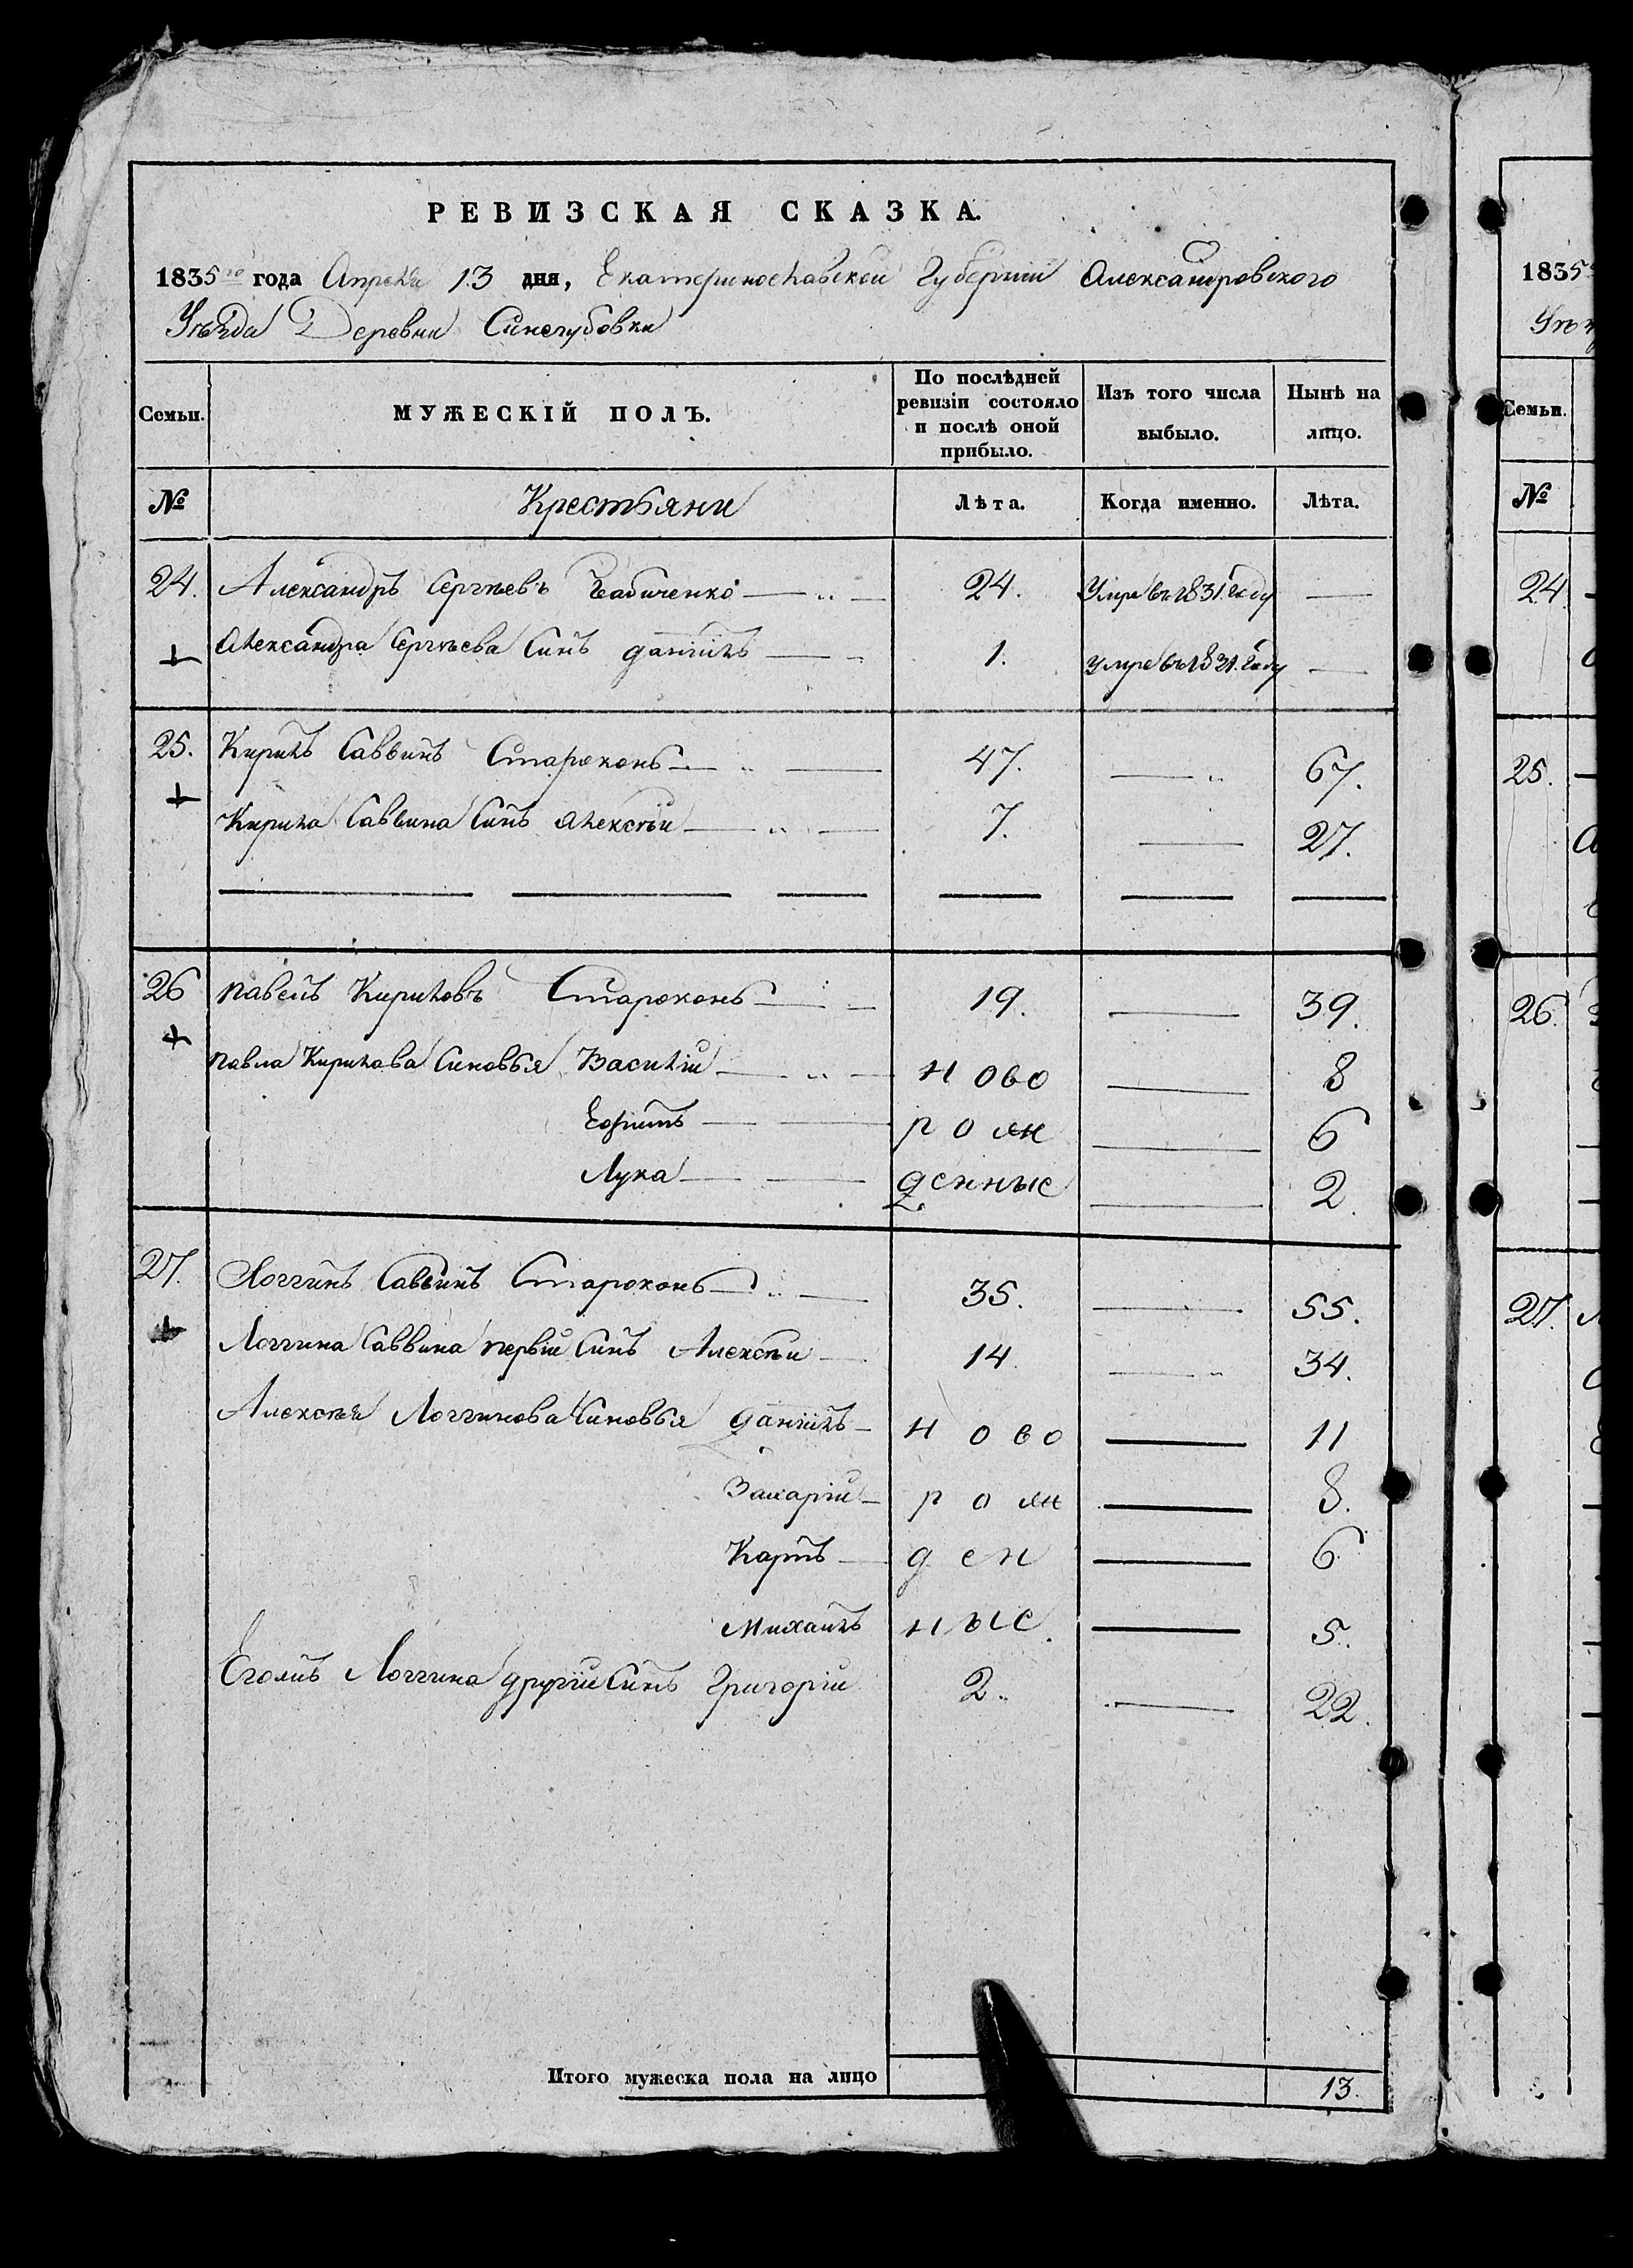 РЕВИЗСКАЯ СКАЗКА.
1835го года Апреля 13 дня, Екатеринославской Губернии Александровского
Уѣзда Деревни Синегубовки
Семьи. МУЖЕСКІЙ ПОЛЪ. По послѣдней ревизіи состояло и послѣ оной прибыло. Изъ того числа выбыло. Нынѣ на лицо.
№ Крестьяни Лѣта. Когда именно. Лѣта.
24. Александръ Сергѣевъ 24. Умре въ 1831. году
Александра Сергѣева Синъ Даніилъ 1. Умре въ 1831. году
25. Кирилъ Саввинъ Староконь 47. 67.
Кирила Саввина Синъ Алексѣй 7. 27.
26 Павелъ Кириловъ Староконь 19. 39.
Павла Кирилова Синовья Василій ново 8
Ефимъ рож 6
Лука денные 2.
27. Логгинъ Саввинъ Староконь 35. 55.
Логгина Саввина первій Синъ Алексѣй 14. 34.
Алексѣя Логгинова Синовья Даніилъ ново 11
Захарій рож 8.
Карпъ ден 6
Михаилъ ные. 5.
Логгина другій Синъ Григорій 2. 22.
Итого мужеска пола на лицо 13.
1835
Уѣз
Семьи.
№
24
25.
26.
27.